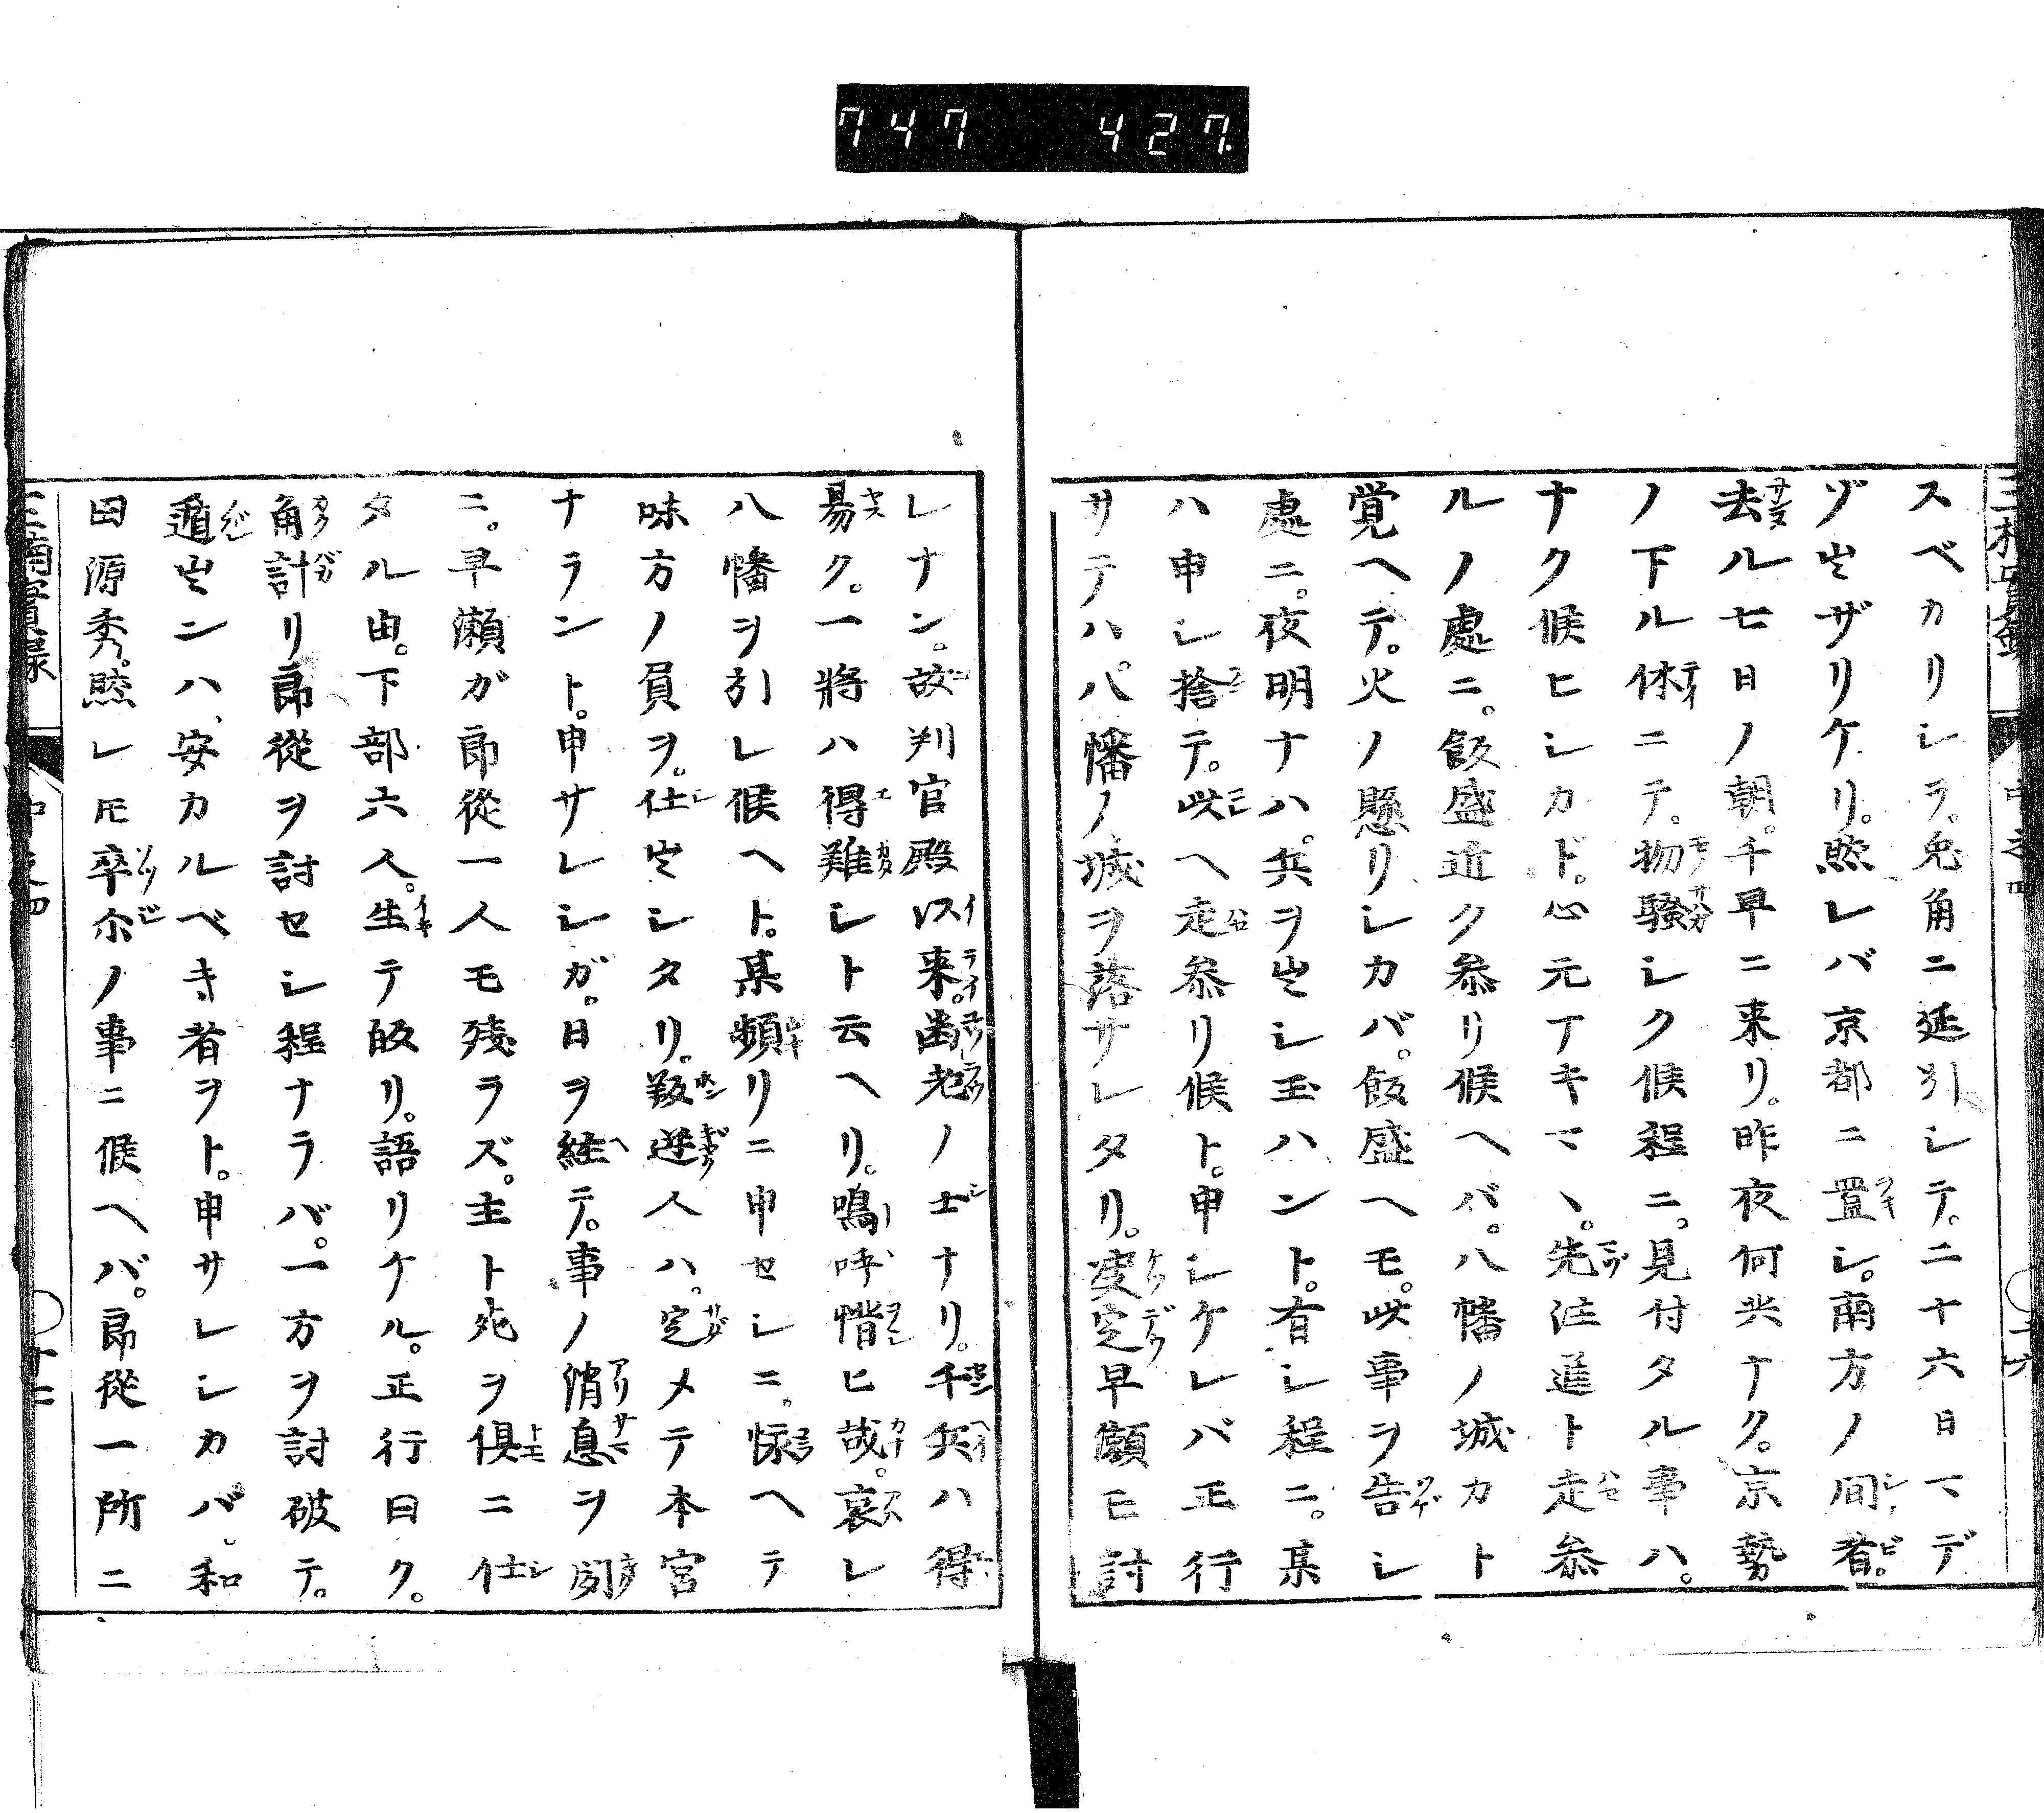 747 427.
スベカリシヲ。兔角ニ延引シテ。二十六日マデ
ゾ出ザリケリ。然レバ京都ニ置シ。南方ノ間者。
去ル七日ノ朝。千早ニ来リ。昨夜何共ナク。京勢
ノ下ル休ニテ。物騒シク候程ニ。見付タル事ハ。
ナク候ヒシカド。心元ナキマヽ。先注進ト走参
ルノ處ニ。飯盛近ク参リ候ヘバ。八幡ノ城カト
覚ヘテ。火ノ懸リシカバ。飯盛ヘモ。此事ヲ告シ
處ニ。夜明ナハ。兵ヲ出シ玉ハント。有シ程ニ。某
ハ申シ捨テ。此ヘ走参リ候ト。申シケレバ正行
サテハ。八幡ノ城ヲ落サレタリ。決定早瀬モ討
レナン。故判官殿以来。歯老ノ士ナリ。千兵ハ得
易ク。一將ハ得難シト云ヘリ。嗚呼惜ヒ哉。哀レ
八幡ヲ引レ候ヘト。某頻リニ申セシニ。怺ヘテ
味方ノ員ヲ。仕出シタリ。叛逆人ハ。定メテ本宮
ナラント。申サレシガ。日ヲ経テ。事ノ消息ヲ聞
ニ。早瀬ガ郎從一人モ残ラズ。主ト死ヲ倶ニ仕
タル由。下部六人。生テ皈リ。語リケル。正行曰ク。
角計リ郎從ヲ討セシ程ナラバ。一方ヲ討破テ。
遁出ンハ、安カルベキ者ヲト。申サレシカバ。和
田源秀。然レ𪜈卒尓ノ事ニ候ヘバ。郎從一所ニ